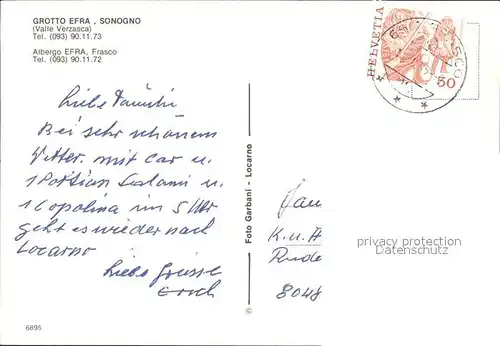 GROTTO EFRA , SONOGNO
(Valle Verzasca)
Tel. (093) 90.11.73
Albergo EFRA, Frasco
Tel. (093) 90.11.72
HELVETIA
50
Liebe Familie
Bei sehr schönem
Wetter. mit Car u.
1 Portion Salami u.
1 Copolina im 5 Uhr
geht es wieder nach
Locarno
Liebe Grüsse
Erich
Foto Garbani - Locarno
©
Fam
K. u. H
Rude
8048
privacy protection
Datenschutz
6895